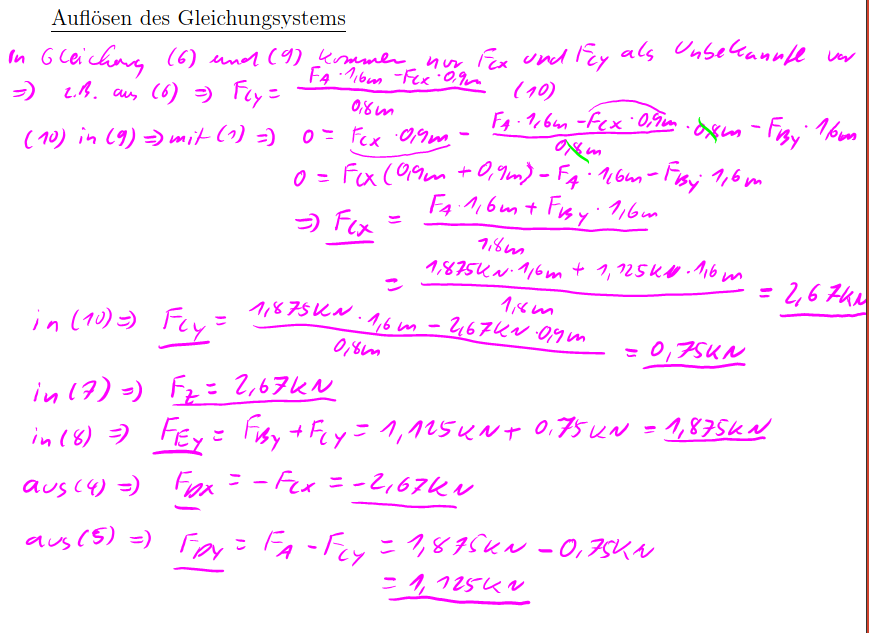 Auflösen des Gleichungsystems
In Gleichung (6) und (9) kommen nur F_Cx und F_Cy als Unbekannte vor
=> z.B. aus (6) => F_Cy = (F_A · 1,6m - F_Cx · 0,9m) / 0,8m (10)
(10) in (9) => mit (1) => 0 = F_Cx · 0,9m - (F_A · 1,6m - F_Cx · 0,9m) / 0,8m · 0,8m - F_By · 1,6m
0 = F_Cx (0,9m + 0,9m) - F_A · 1,6m - F_By · 1,6m
=> F_Cx = (F_A · 1,6m + F_By · 1,6m) / 1,8m
= (1,875kN · 1,6m + 1,125kN · 1,6m) / 1,8m = 2,67kN
in (10) => F_Cy = (1,875kN · 1,6m - 2,67kN · 0,9m) / 0,8m = 0,75kN
in (7) => F_Z = 2,67kN
in (8) => F_Ey = F_By + F_Cy = 1,125kN + 0,75kN = 1,875kN
aus (4) => F_Dx = - F_Cx = -2,67kN
aus (5) => F_Dy = F_A - F_Cy = 1,875kN - 0,75kN
= 1,125kN